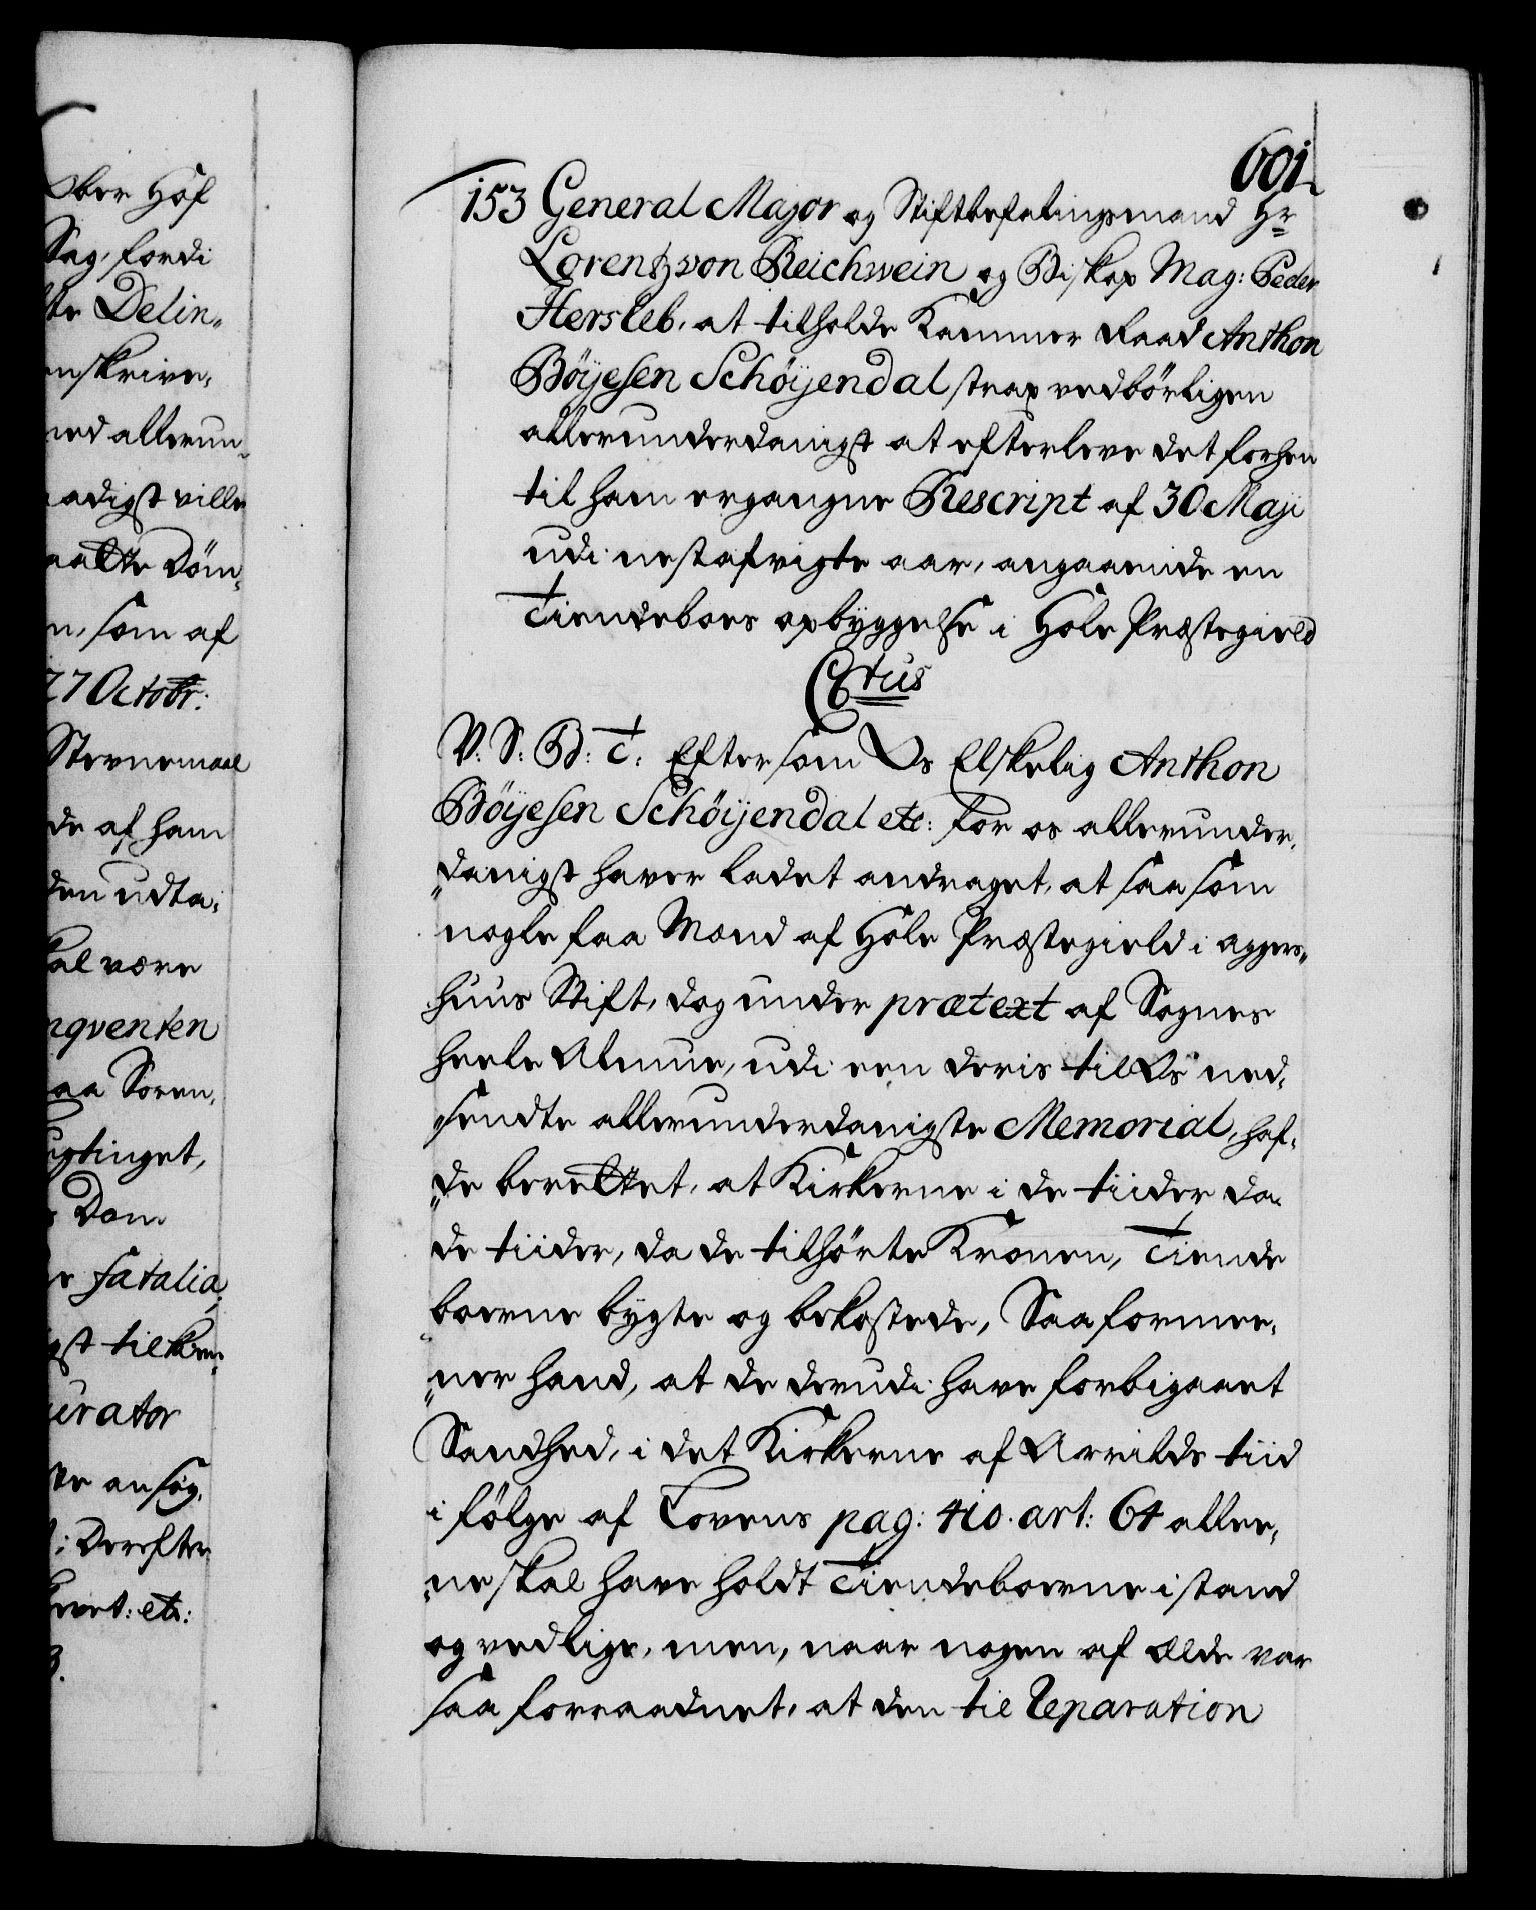 Ober Hof
Sag, fordi
Delin„
enskrive,
ned allerun„
aadigst ville
Döm„
n, som af
27 Octobr:
Stevnemaal
de af ham
den udta„
kal være
nqventen
aa Soren,
ugtinget,
Dom
fatalia,
gst tilken„
urator
te ansög„
Derefter
etc:
601.
153 General Major og Stiftbefalingsmand Hr
Lorentz von Reichwein og Biskop Mag: Peder
Hersleb, at tilholde Kammer Raad Anthon
Böÿesen Schöÿendal strax vedbörligen
allerunderdanigst at efterleve det forhen
til ham ergangne Rescript af 30 Maji
udi nestafvigte aar, angaaende en
Tiendeboes opbyggelse i Hole Præstegield
Ctus
V: S: B: T: Eftersom Os Elskelig Anthon
Böÿesen Schöÿendal etc: for os allerunder„
danigst haver ladet andraget, at saasom
nogle faa Mænd af Hole Præstegield i Aggers„
huus Stift, dog under prætext af Sognes
heele Almue, udi een deris til Os ned„
sendte allerunderdanigste Memorial, haf„
de berettet, at Kirkerne i de tiider da
de tiider, da de tilhörte Kronen, Tiende
boerne bygte og bekostede, Saa formee„
ner hand, at de derudi have forbigaaet
Sandhed, i det Kirkerne af Arrilds tiid
i fölge af Lovens pag: 410. art: 64 allee„
ne skal have holdt Tiendeboerne i stand
og vedlige, men, naar nogen af ælde var
saa forraadnet, at den til Reparation